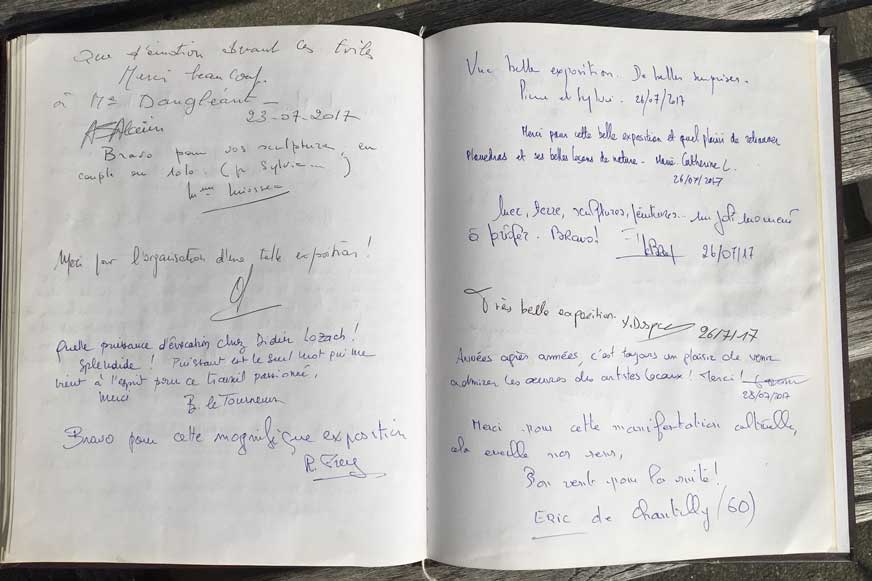 Que d'émotion devant ces toiles
Merci beaucoup
à Me Dangléant
23-07-2017
Bravo pour vos sculptures, en
couple ou solo. (p Sylvia ... )
Mme
Merci par l'organisation d'une telle exposition !
Quelle puissance d'évocation chez Didier Lozach !
Splendide ! Puissant est le seul mot qui me
vient à l'esprit pour ce travail passionné,
Merci
B. le Tourneur
Bravo pour cette magnifique exposition
R. Frey
Une belle exposition. De belles surprises.
Pierre et Sylvie. 26/07/2017
Merci pour cette belle exposition et quel plaisir de retrouver
et ses belles leçons de nature - Marie Catherine L.
26/07/2017
Mer, terre, sculptures, peintures... un joli moment
à . Bravo !
26/07/17
Très belle exposition.
26/7/17
Années après années, c'est toujours un plaisir de venir
admirer les œuvres des artistes locaux ! Merci !
28/07/2017
Merci pour cette manifestation culturelle,
cela éveille nos sens,
Bon vent pour la suite !
ERIC de Chantilly (60)